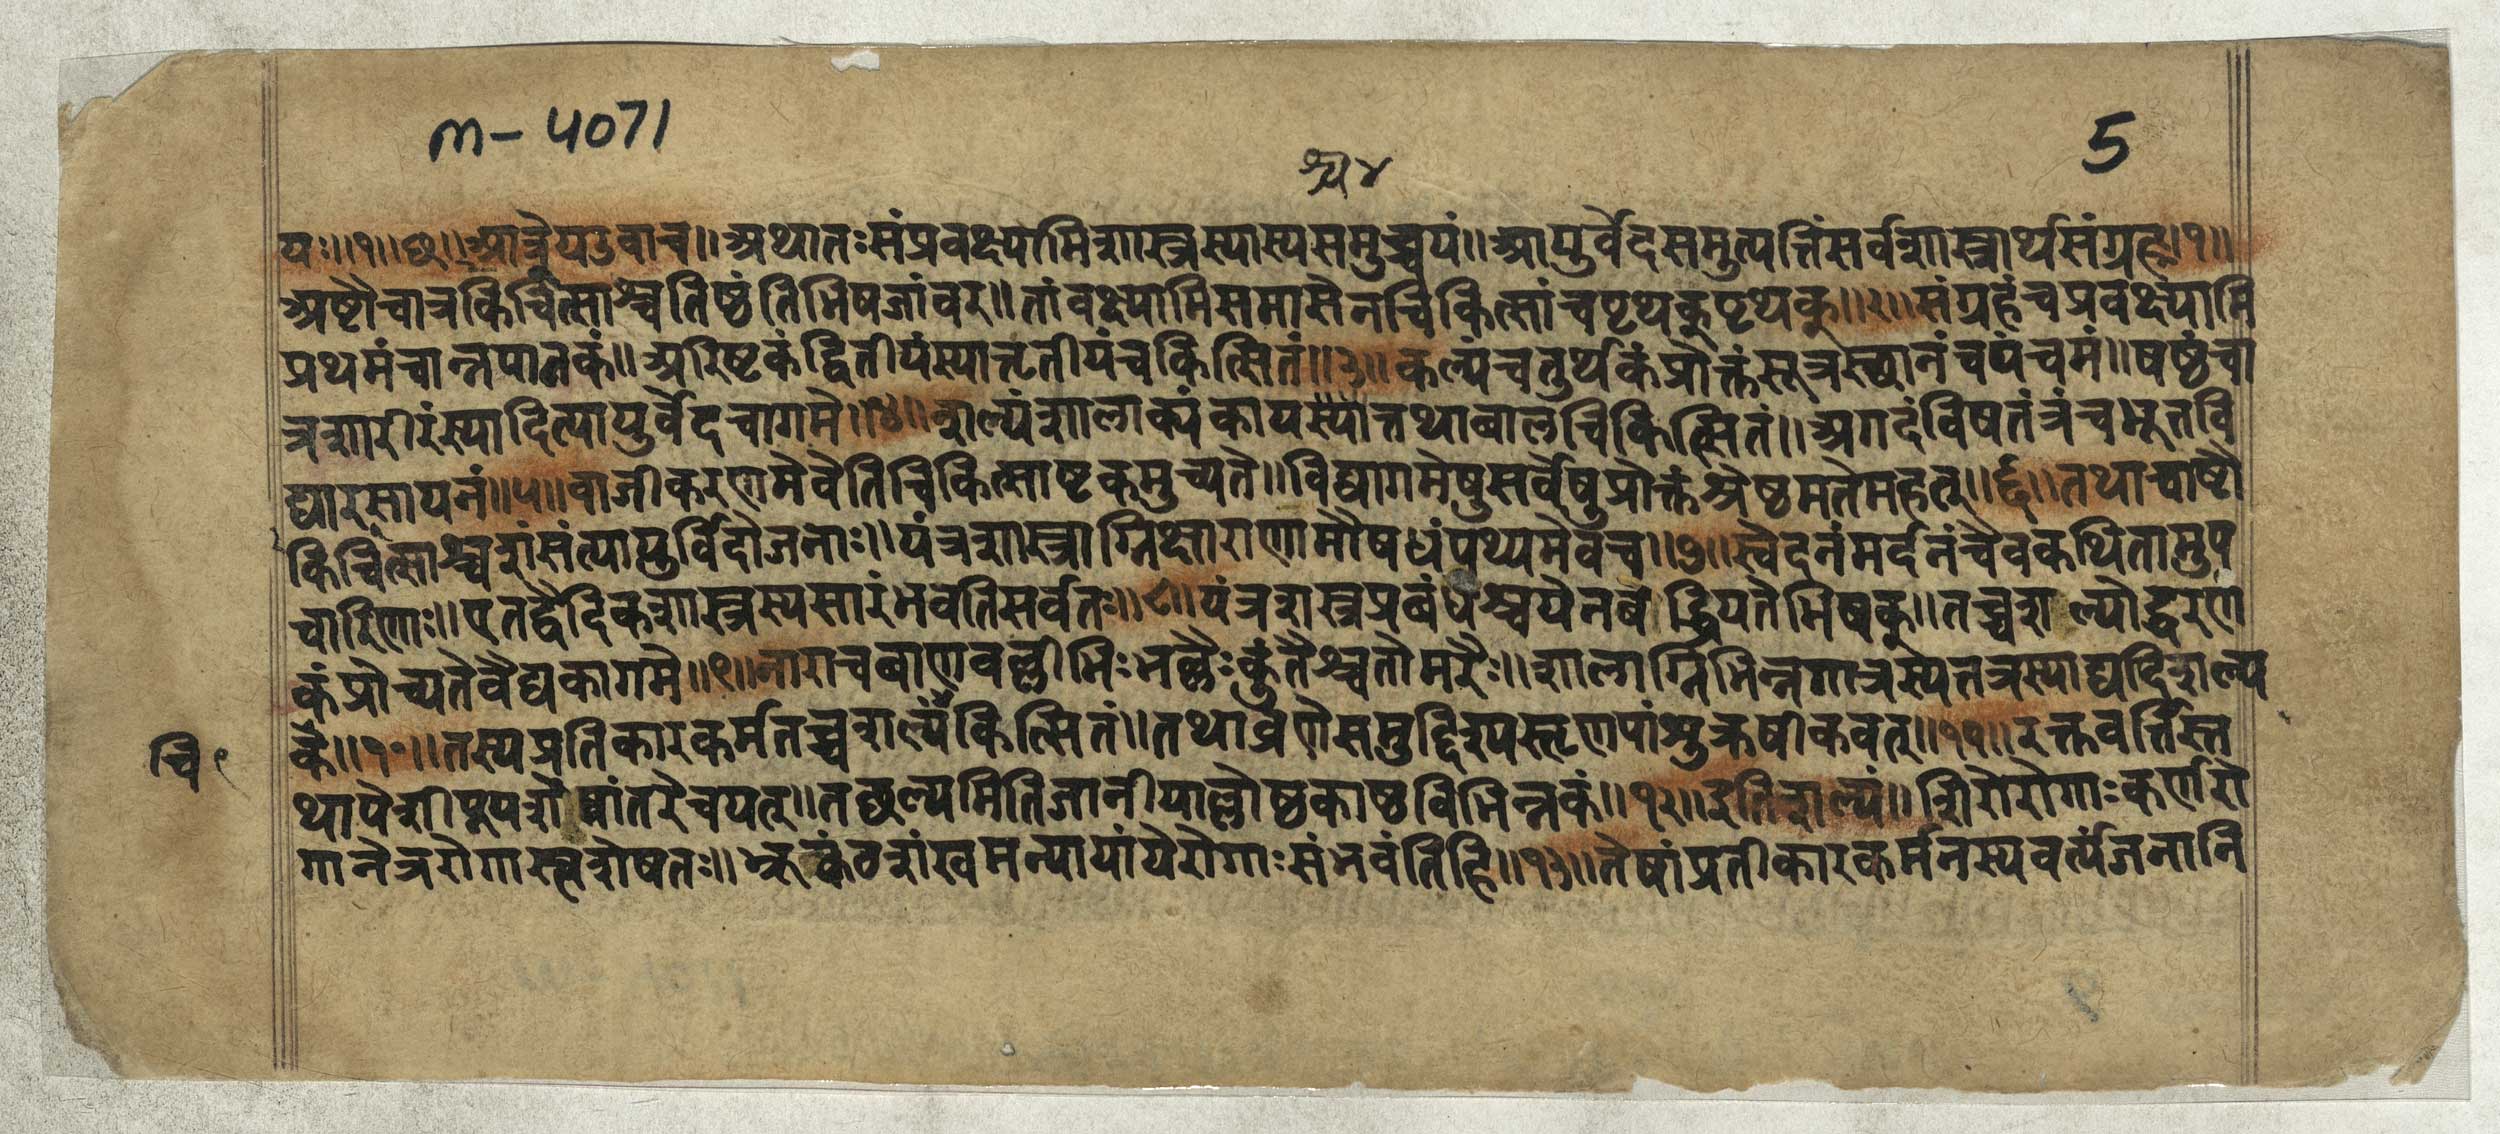 m - 4071
5
अ ४
यः॥१॥छ॥आत्रेयउवाच॥अथातःसंप्रवक्ष्यामिशास्त्रस्यास्यसमुच्चयं॥आयुर्वेदसमुत्पत्तिंसर्वशास्त्रार्थसंग्रहं॥१॥
अष्टौचात्रकिचित्साश्चतिष्ठंतिभिषजांवर॥तांवक्ष्यामिसमासेनचिकित्सांचपृथक्पृथक्॥२॥संग्रहंचप्रवक्ष्यामि
प्रथमंचान्नपातकं॥अरिष्टकंद्वितीयंस्यात्तृतीयंचकित्सितं॥३॥कल्पंचतुर्थकंप्रोक्तंसूत्रस्छानंचपंचमं॥षष्ठंचा
त्रशारीरंस्यादित्यायुर्वेदचागमे॥४॥शल्यंशालाक्यंकायस्यात्तथाबालचिकित्सितं॥अगदंविषतंत्रंचभूतवि
द्यारसायनं॥५॥वाजीकरणमेवेतिचिकित्साष्टकमुच्यते॥विद्यागमेषुसर्वेषुप्रोक्तंश्रेष्ठमतेमहत्॥६॥तथाचाष्टौ
किचित्साश्चशंसंत्यायुर्विदोजनाः॥यंत्रशास्त्राग्निक्षाराणामौषधंपथ्यमेवच॥७॥स्वेदनंमर्दनंचैवकथितामुप
चारिणाः॥एतद्वैदिकशास्त्रस्यसारंभवतिसर्वतः॥८॥यंत्रशस्त्रप्रबंधश्चयेनब द्ध्रियतेभिषक्॥तच्चश ल्योद्धरण
कंप्रोच्यतेवैद्यकागमे॥९॥नाराचबाणवल्लीभिःभल्लैःकुंतैश्चतोमरैः॥शालाग्निभिन्नगात्रस्यतत्रस्याद्यदिशल्य
के॥१०॥तस्यप्रतिकारकर्मतच्चशल्यंकित्सितं॥तथाव्रणेसमुद्दिरुपस्तृणपांशुक्रषीकवत्॥११॥रक्तवर्त्तिस्त
चि९
थापेशीपूपशो षांतरेचयत्॥तछल्यमितिजानीयाल्लोष्ठकाष्ठविभिन्नकं॥१२॥इतिशल्यं॥शिरोरोगाःकर्णरो
गानेत्ररोगास्त्वशेषतः॥भ्रूकंठशंखमन्यायांयेरोगाःसंभवंतिहि॥१३॥तेषांप्रतीकारकर्मनस्यवर्त्यंजनानि